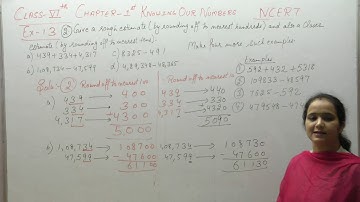 CLASS-VIth CHAPTER-1st KNOWING OUR NUMBERS NCERT
Ex-1.3 ② Give a rough estimate (by rounding off to nearest hundreds) and also a closer
estimate (by rounding off to nearest tens):
Make four more such examples.
a) 439+334+4317
b) 1,08,734-47,599
c) 8325-491
d) 4,89,348-48,365
Examples
① 592+432+5318
② 109833-48597
③ 9625-592
Round off to nearest 100
Round off to nearest 10
439 → 400
334 → 300
4,317 → 4300
5,000
439 → 440
334 → 330
4317 → 4320
5090
b) 1,08,734 → 108700
47,599 → -47600
61100
1,08,734 → 108730
47,599 → -47600
61130